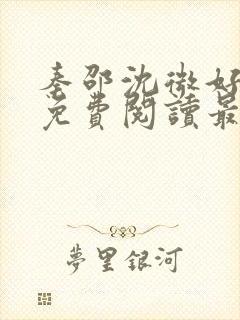 秦邵沈微妤
免費閱讀最
夢里銀河